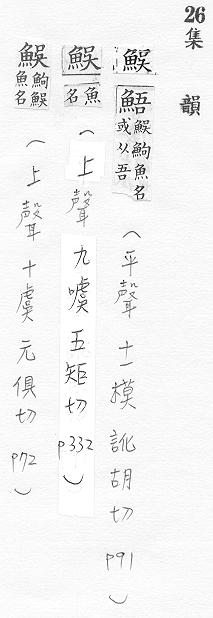 26 集韻
䱐 鯃 䱐鮈魚名或从吾 （平聲 十一模 訛胡切 p91）
䱐 魚名 （上聲 九噳 五矩切 p332）
䱐 鮈䱐魚名 （上聲 十虞 元俱切 p72）